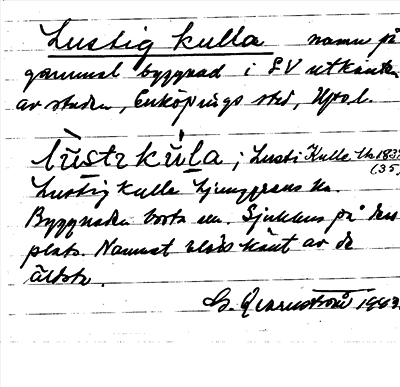 Lustig kulla namn på
gammal byggnad i SV utkanten
av staden, Enköpings stad, Uppl.
lùstɩkúla; Lusti Kulle 1837
(35)
Lustig kulla Ljunggrens
Byggnaden borta nu. Sjukhus på dess
plats. Namnet blott känt av de
äldsta.
1943.